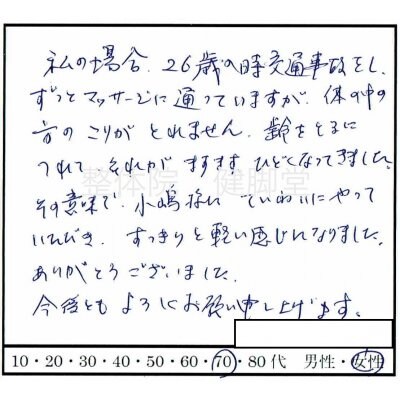 私の場合、26歳の時交通事故をし、
ずっとマッサージに通っていますが、体の中の
方のこりがとれません。齢をとるに
つれて、それがますますひどくなってきました。
整体院 健脚堂
その意味で、小嶋様に ていねいにやって
いただき、すっきりと軽い感じになりました。
ありがとうございました。
今後ともよろしくお願い申し上げます。
10・20・30・40・50・60・70・80代 男性・女性